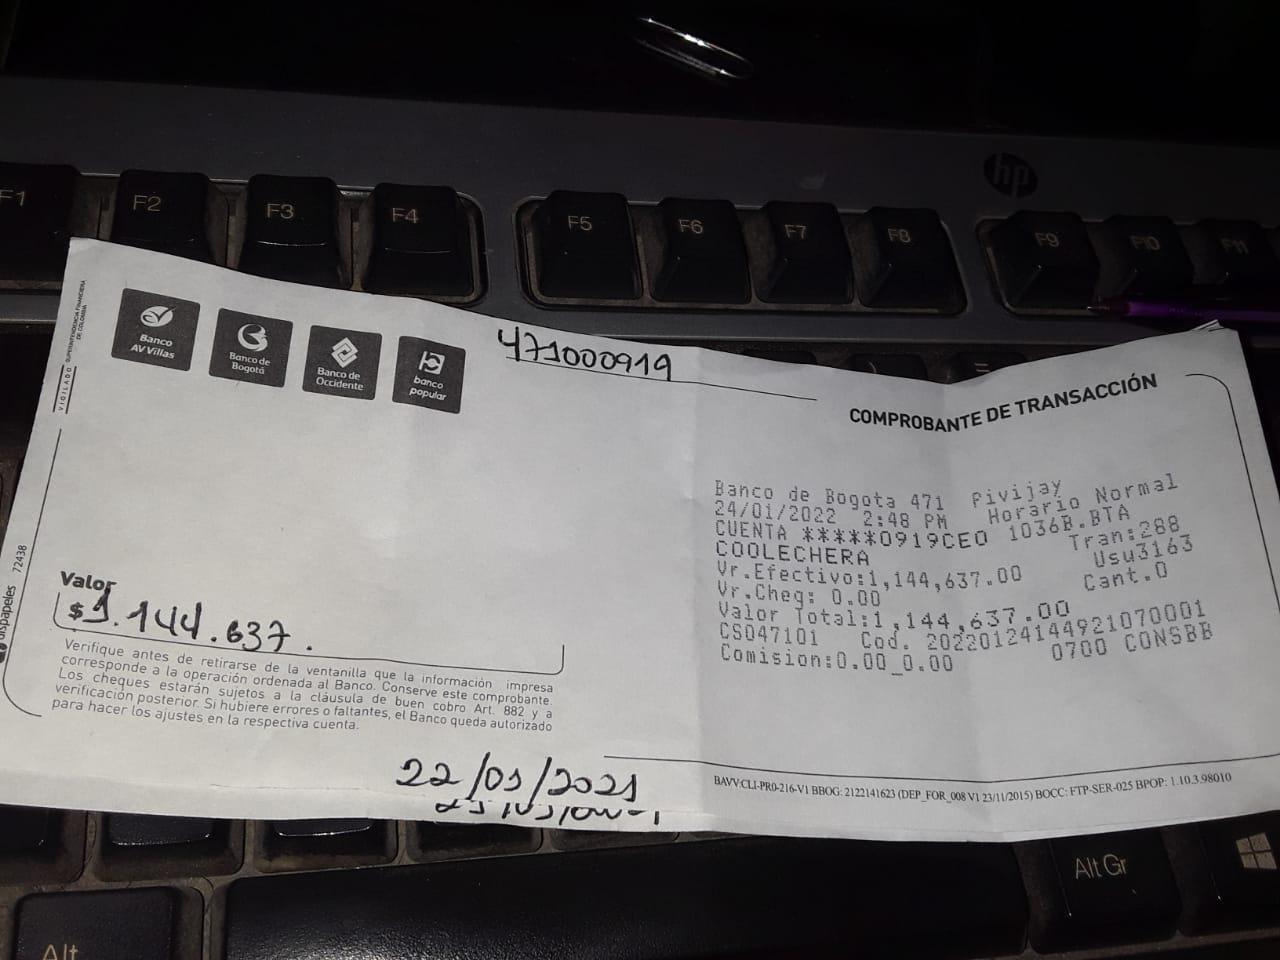 F1 F2 F3 F4 F5 F6 F7 F8 F9 F10 F11
hp
VIGILADO SUPERINTENDENCIA FINANCIERA
DE COLOMBIA
Banco
AV Villas
Banco de
Bogotá
Banco de
Occidente
banco
popular
471000919
COMPROBANTE DE TRANSACCIÓN
Banco de Bogota 471 Pivijay
24/01/2022 2:48 PM Horario Normal
CUENTA *****0919CEO 1036B.BTA
COOLECHERA Tran:288
Vr.Efectivo:1,144,637.00 Usu3163
Vr.Cheq: 0.00 Cant.0
Valor Total:1,144,637.00
CS047101 Cod. 20220124144921070001
Comision:0.00_0.00 0700 CONSBB
Valor
$ 1.144.637.
Verifique antes de retirarse de la ventanilla que la información impresa
corresponde a la operación ordenada al Banco. Conserve este comprobante.
Los cheques estarán sujetos a la cláusula de buen cobro Art. 882 y a
verificación posterior. Si hubiere errores o faltantes, el Banco queda autorizado
para hacer los ajustes en la respectiva cuenta.
dispapeles 72438
22/01/2021
BAVV:CLI-PRO-216-V1 BBOG: 2122141623 (DEP_FOR_008 V1 23/11/2015) BOCC: FTP-SER-025 BPOP: 1.10.3.98010
Alt
Alt Gr